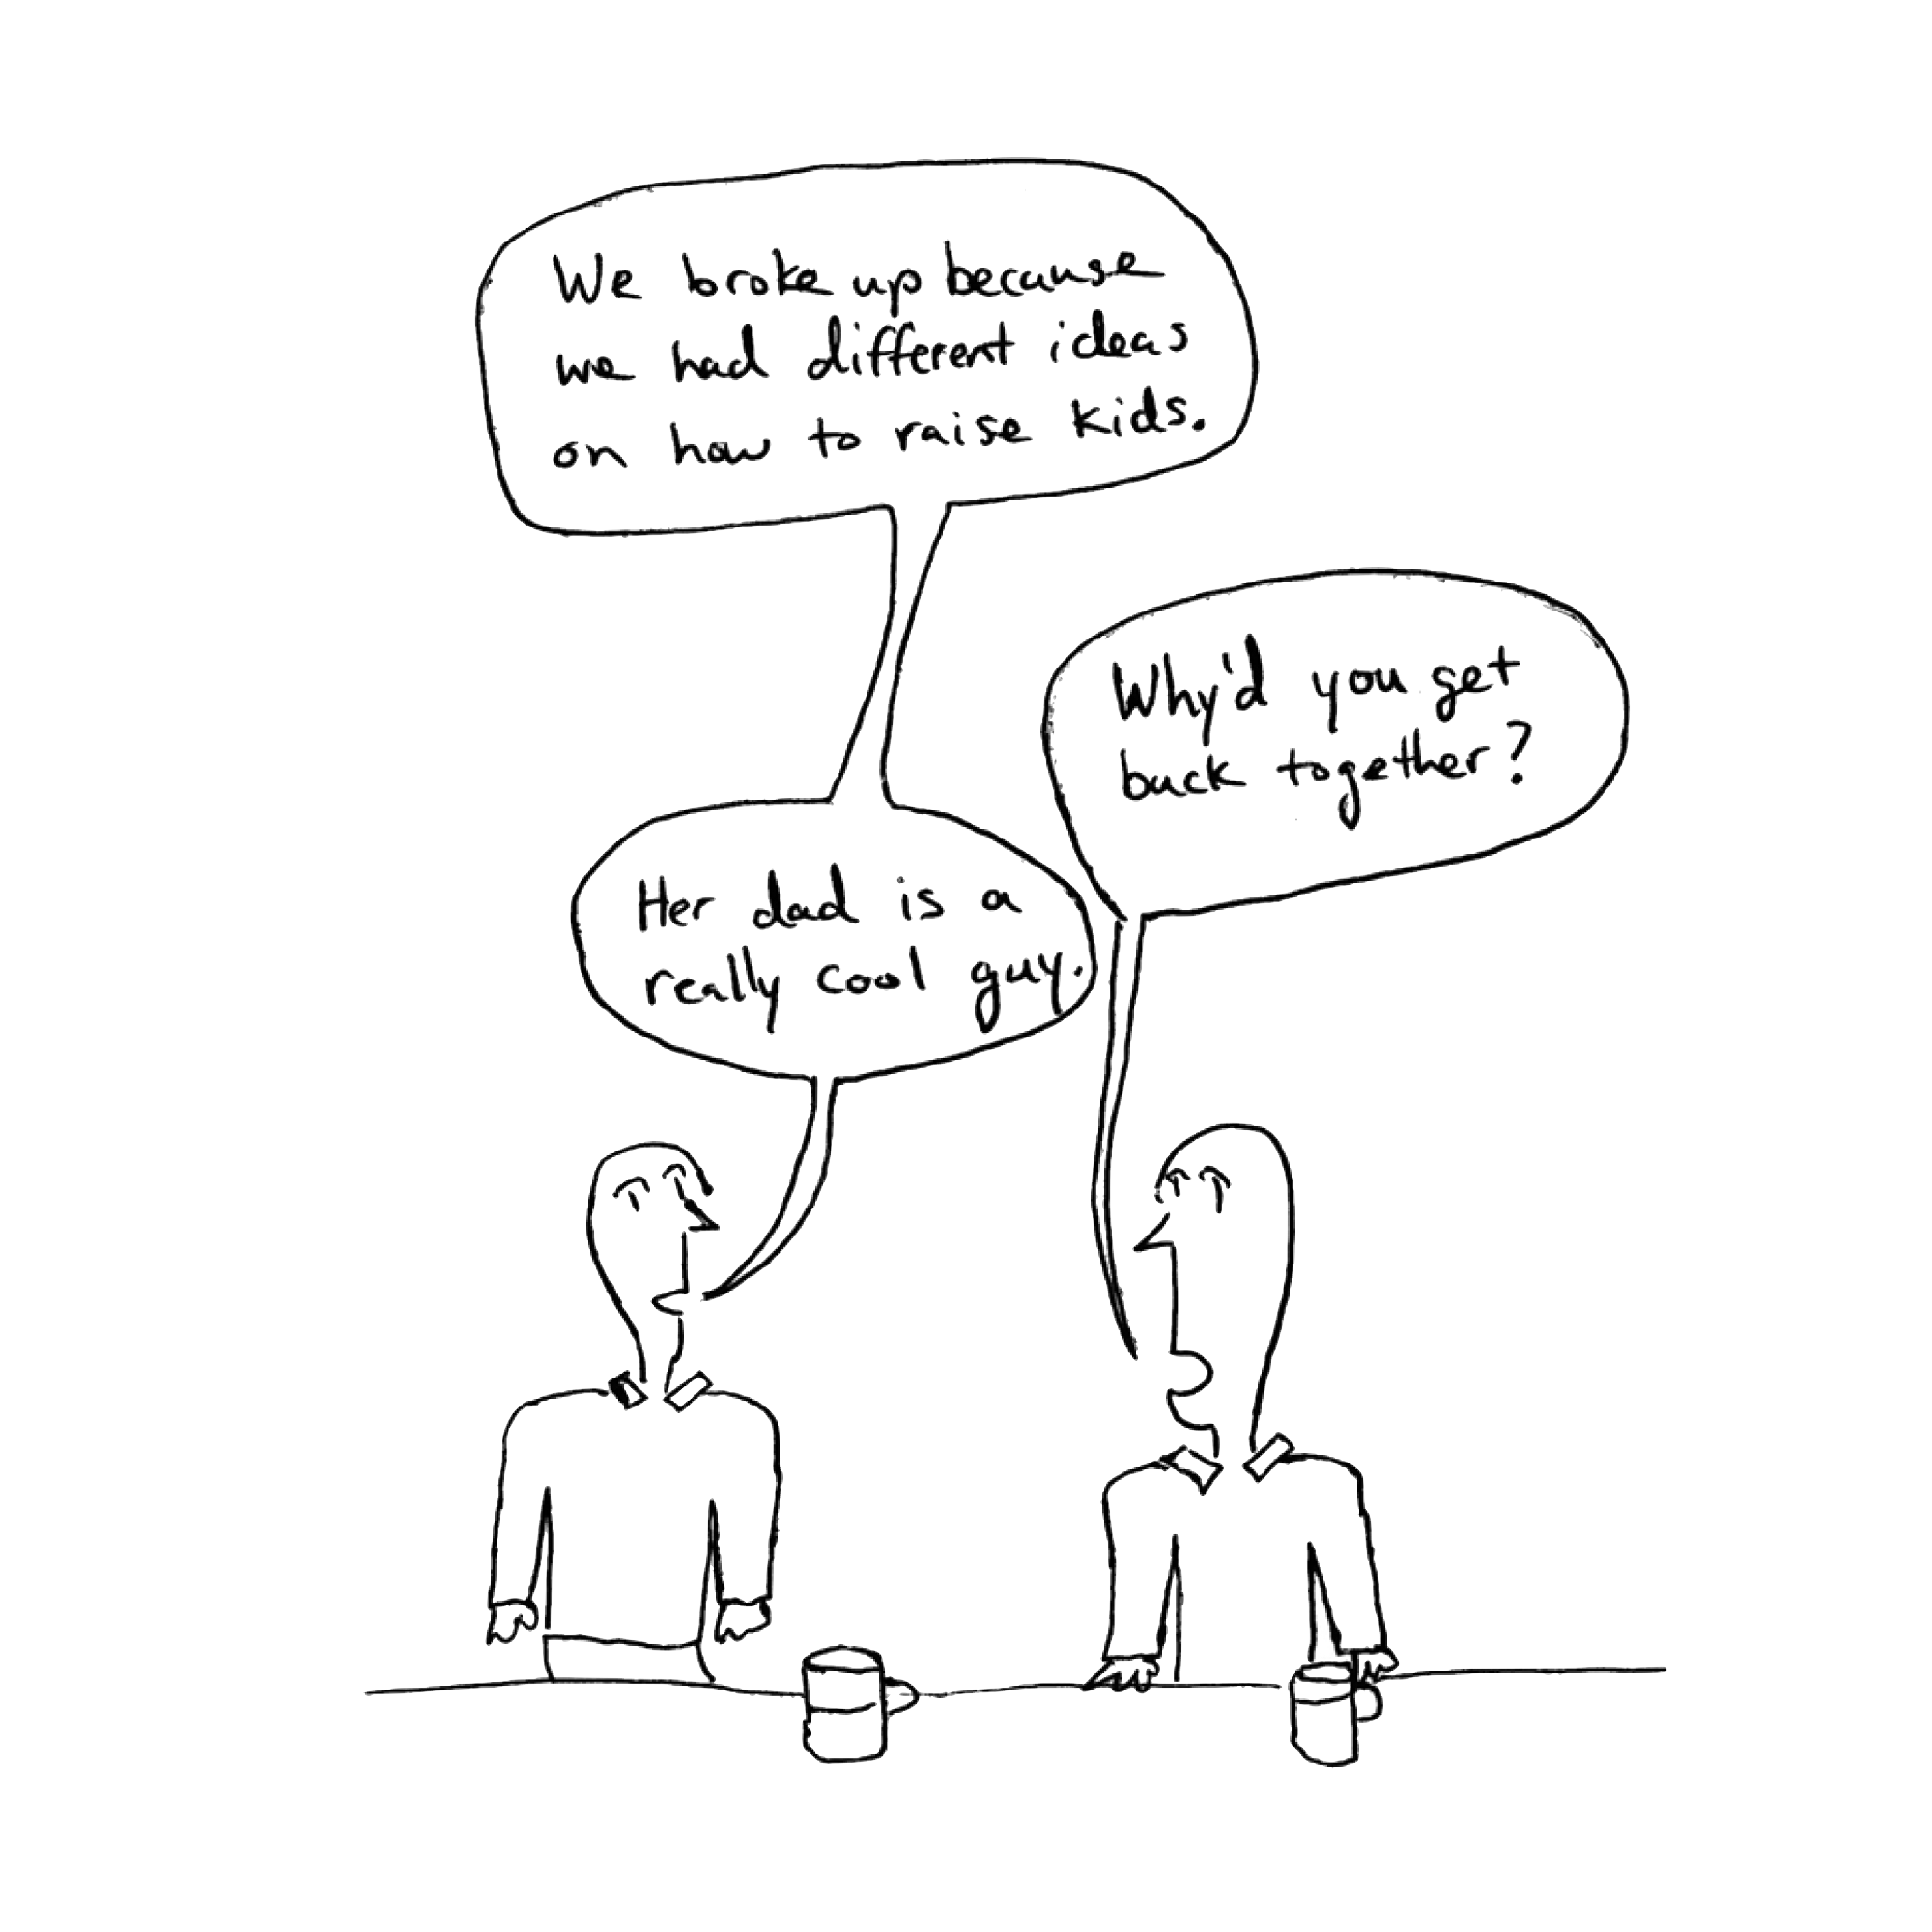 We broke up because
we had different ideas
on how to raise kids.
Why'd you get
back together?
Her dad is a
really cool guy.